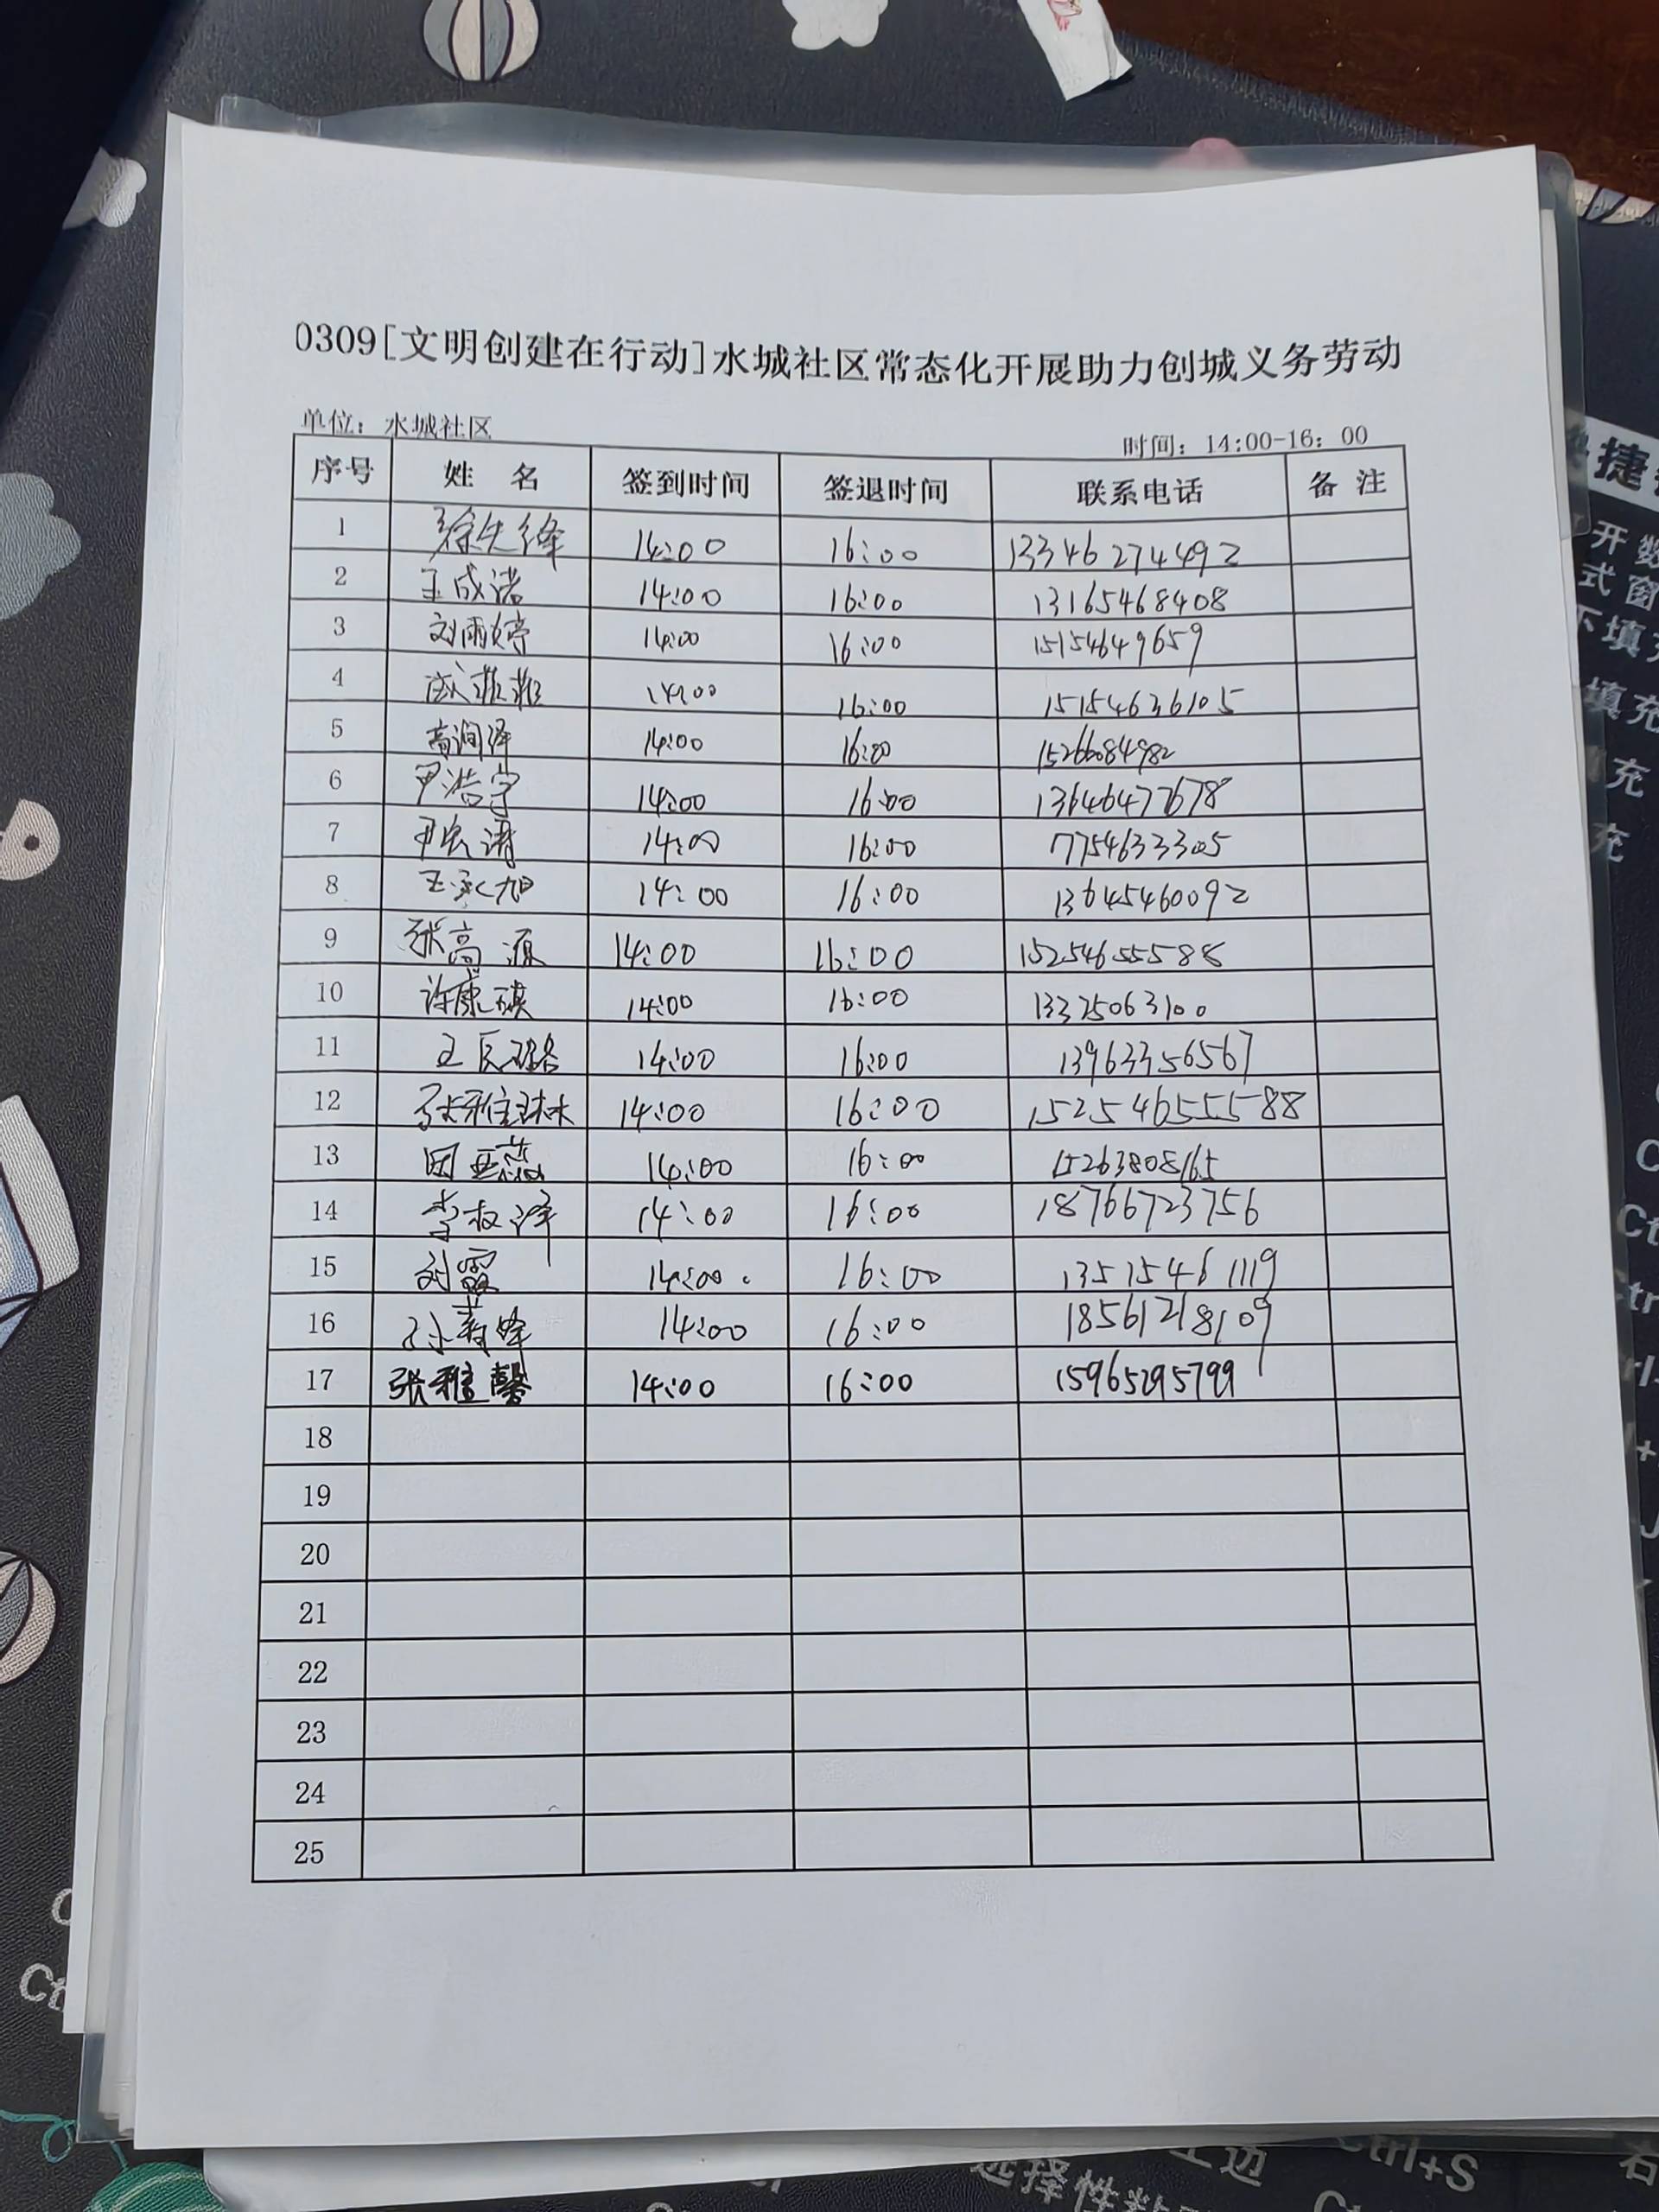 0309[文明创建在行动]水城社区常态化开展助力创城义务劳动
单位：水城社区 时间：14:00-16：00
序号 姓 名 签到时间 签退时间 联系电话 备 注
1 徐先锋 14:00 16:00 13346274492
2 王成诺 14:00 16:00 13165468408
3 刘雨婷 14:00 16:00 15154649659
4 14:00 16:00 15154636105
5 高润泽 14:00 16:00 15266084982
6 尹浩宇 14:00 16:00 13646477678
7 14:00 16:00 17754633305
8 王永旭 14:00 16:00 13645460092
9 张高源 14:00 16:00 15254655588
10 许康祺 14:00 16:00 13325063100
11 14:00 16:00 13963356567
12 张雅琳 14:00 16:00 15254655588
13 14:00 16:00 15263808165
14 李叔泽 14:00 16:00 18766723756
15 刘霞 14:00. 16:00 13515461119
16 14:00 16:00 18561218109
17 张雅馨 14:00 16:00 15965295799
18
19
20
21
22
23
24
25
捷
开数
式窗
不填充
填充
充
充
Ctrl+S
选择性数
右